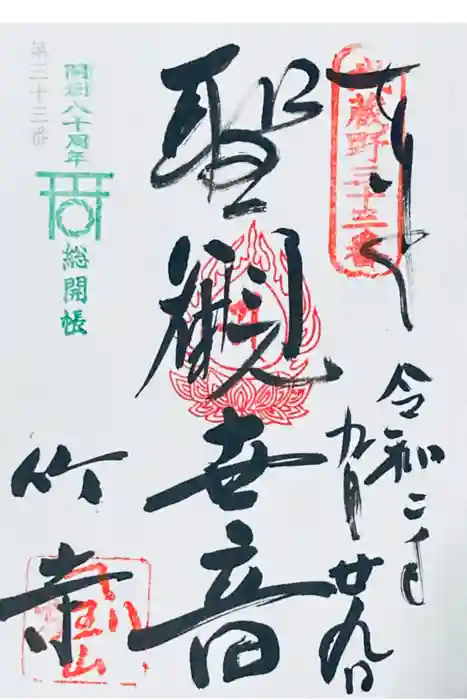 奉拝
武蔵野三十三番
令和二年
九月廿九日
聖観世音
竹寺
開創八十周年
総開帳
第三十三番